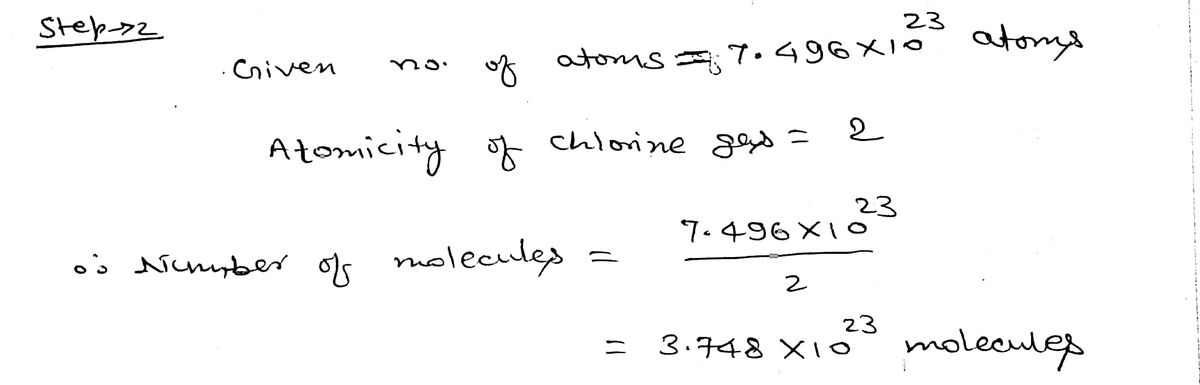 Step→2
Given no. of atoms = 7.496×10²³ atoms
Atomicity of chlorine gas = 2
∴ Number of molecules = 7.496×10²³ / 2
= 3.748×10²³ molecules